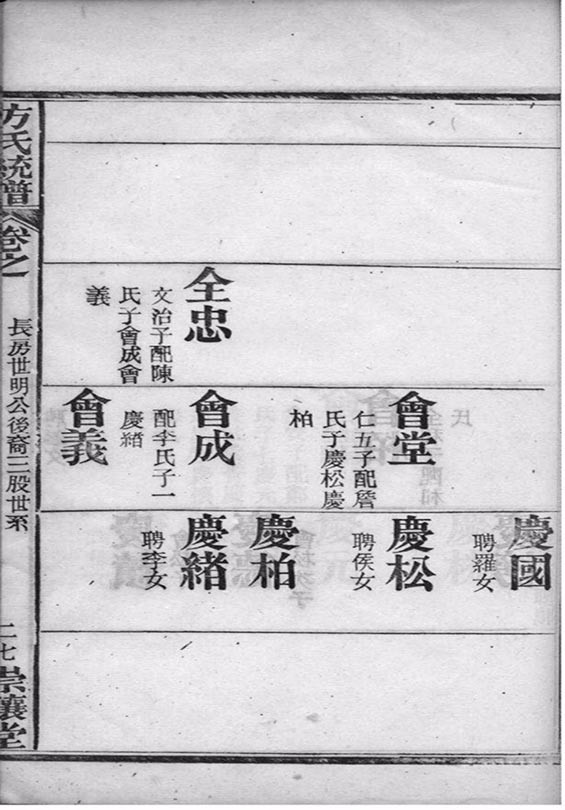 方氏統譜
卷之一
長房世明公後裔三股世系
二七
崇讓堂
全忠
文治子配陳
氏子會成會
義
會堂
仁五子配詹
氏子慶松慶
柏
會成
配李氏子一
慶緒
會義
慶國
聘羅女
慶松
聘侯女
慶柏
慶緒
聘李女